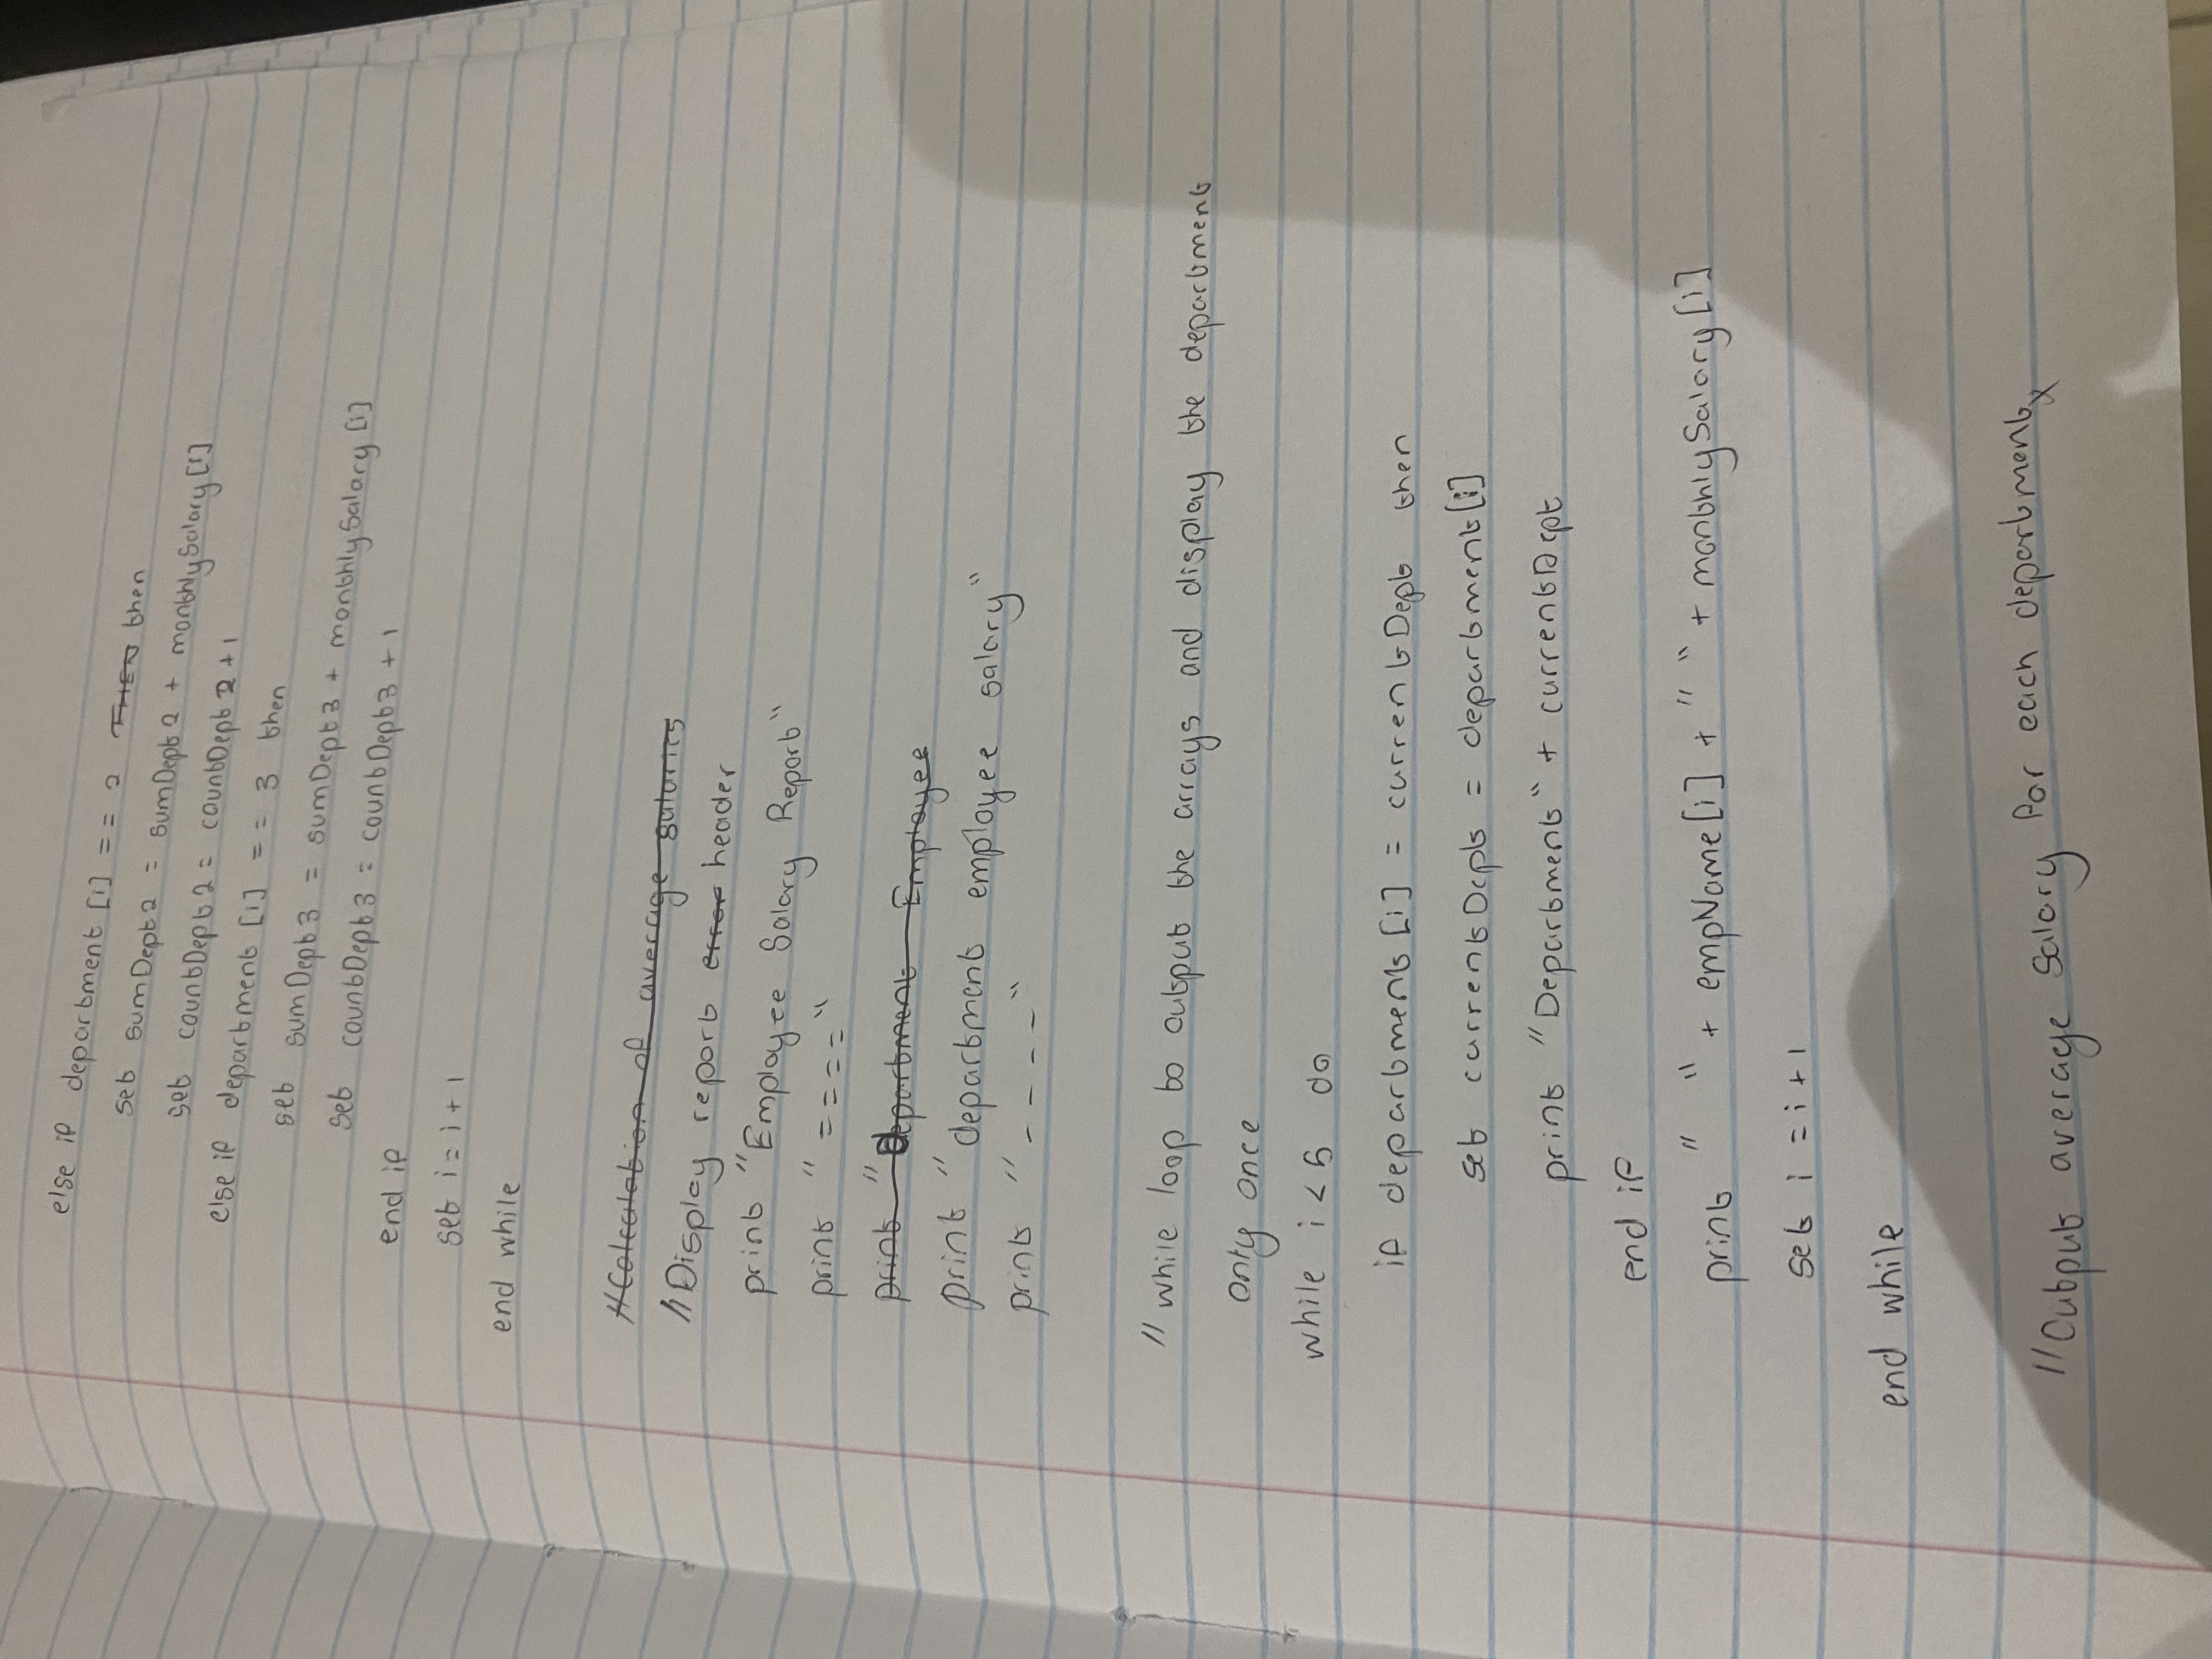 else if department [i] == 2 THEN then
set sumDept2 = sumDept2 + monthlySalary[i]
set countDept2 = countDept2+1
else if department [i] == 3 then
set sumDept3 = sumDept3 + monthlySalary[i]
set countDept3 = countDept3 + 1
end if
set i = i + 1
end while
//Calculation of average salaries
//Display report error header
print "Employee Salary Report"
print "===="
print "department Employee
print "department employee salary"
print "----"
// while loop to output the arrays and display the department
only once
while i < 5 do
if department[i] = currentDept then
set currentDept = department[i]
print "Department" + currentDept
end if
print " " + empName[i] + " " + monthlySalary[i]
set i = i+1
end while
//Output average salary for each department